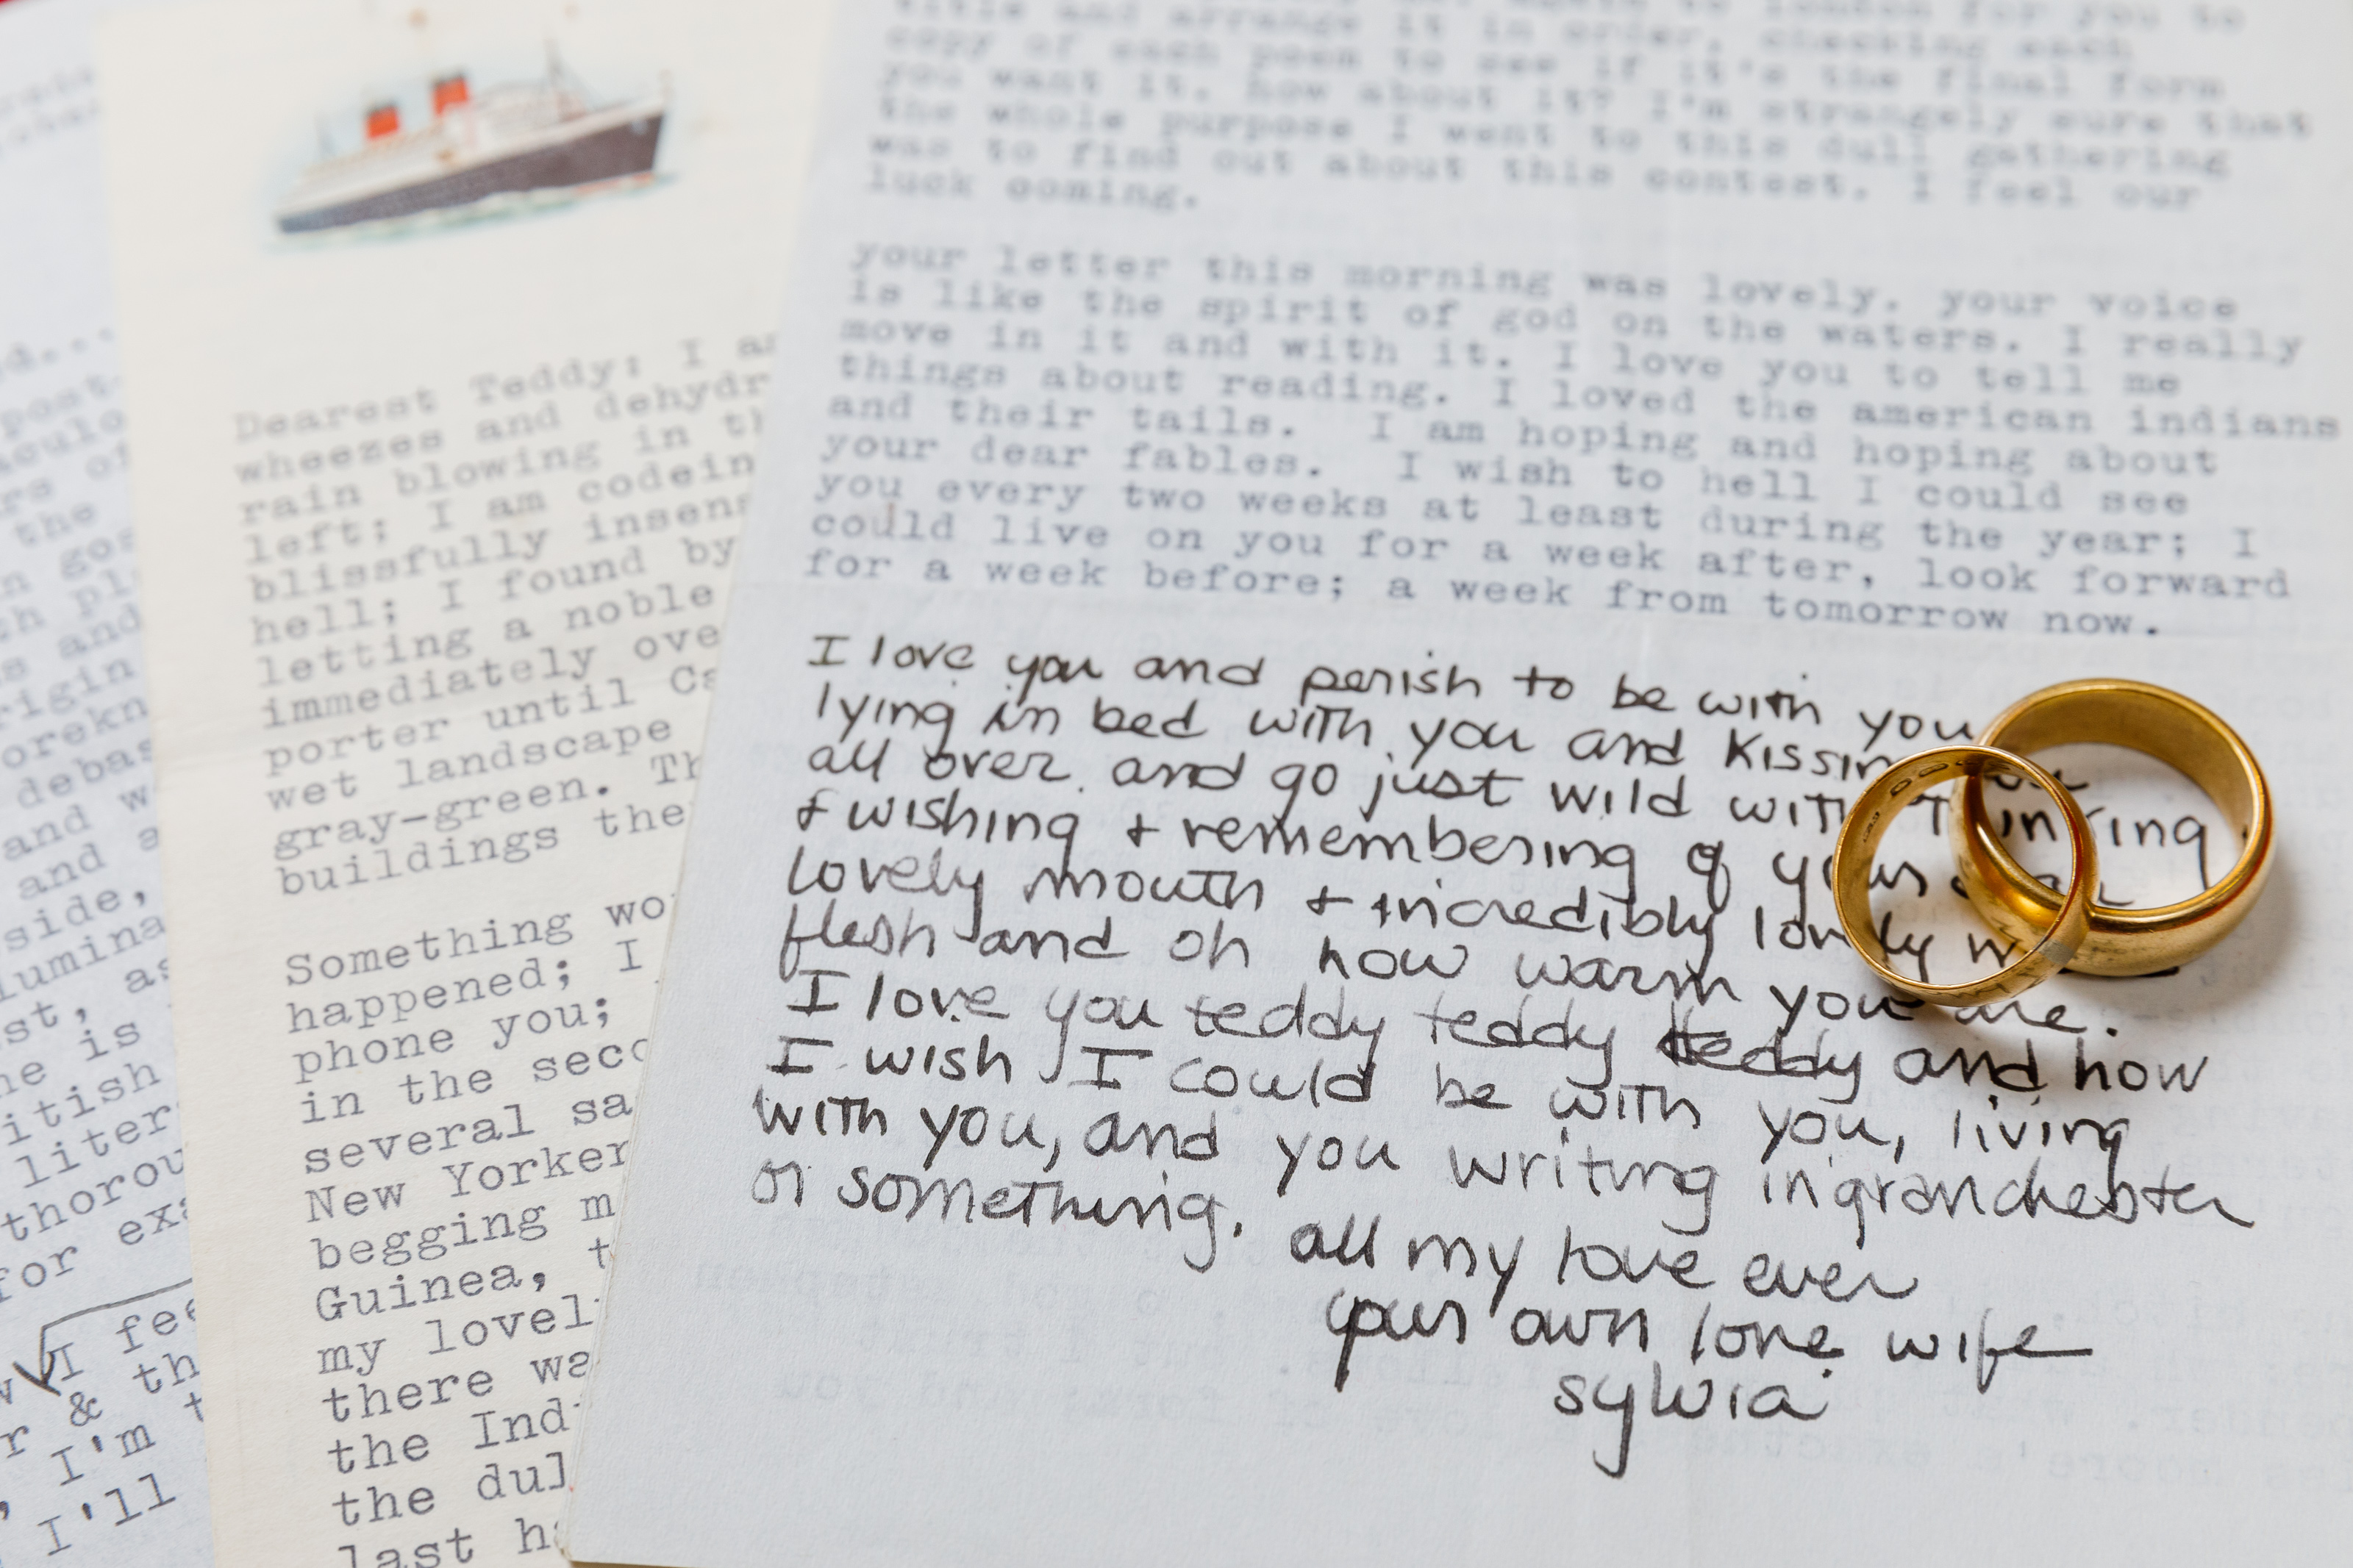 title and arrange it in order, checking each
copy of each poem to see if it's the final form
you want it. how about it? I'm strangely sure that
the whole purpose I went to this dull gathering
was to find out about this contest. I feel our
luck coming.
your letter this morning was lovely. your voice
is like the spirit of god on the waters. I really
move in it and with it. I love you to tell me
things about reading. I loved the american indians
and their tails. I am hoping and hoping about
your dear fables. I wish to hell I could see
you every two weeks at least during the year; I
could live on you for a week after, look forward
for a week before; a week from tomorrow now.
I love you and perish to be with you
lying in bed with you and kissin
all over and go just wild with
+ wishing + remembering of your dear
lovely mouth + incredibly lovely
flesh and oh how warm you are.
I love you teddy teddy teddy and how
I wish I could be with you, living
with you, and you writing in granchester
or something.
all my love ever
your own love wife
sylvia
Dearest Teddy: I a
wheezes and dehydr
rain blowing in th
left; I am codein
blissfully insens
hell; I found by
letting a noble
immediately ove
porter until Ca
wet landscape
gray-green. Th
buildings the
Something wo
happened; I
phone you;
in the seco
several sa
New Yorker
begging m
Guinea, t
my lovel
there wa
the Ind
the dul
last ha
d...
post-
aculo
rs of
the
n gos
th pl
s and
rigin
orekn
debas
and w
and a
side,
lumina
st, as
ne is
itish
liter
thorou
for exa
I fee
r & th
I'm t
I'll